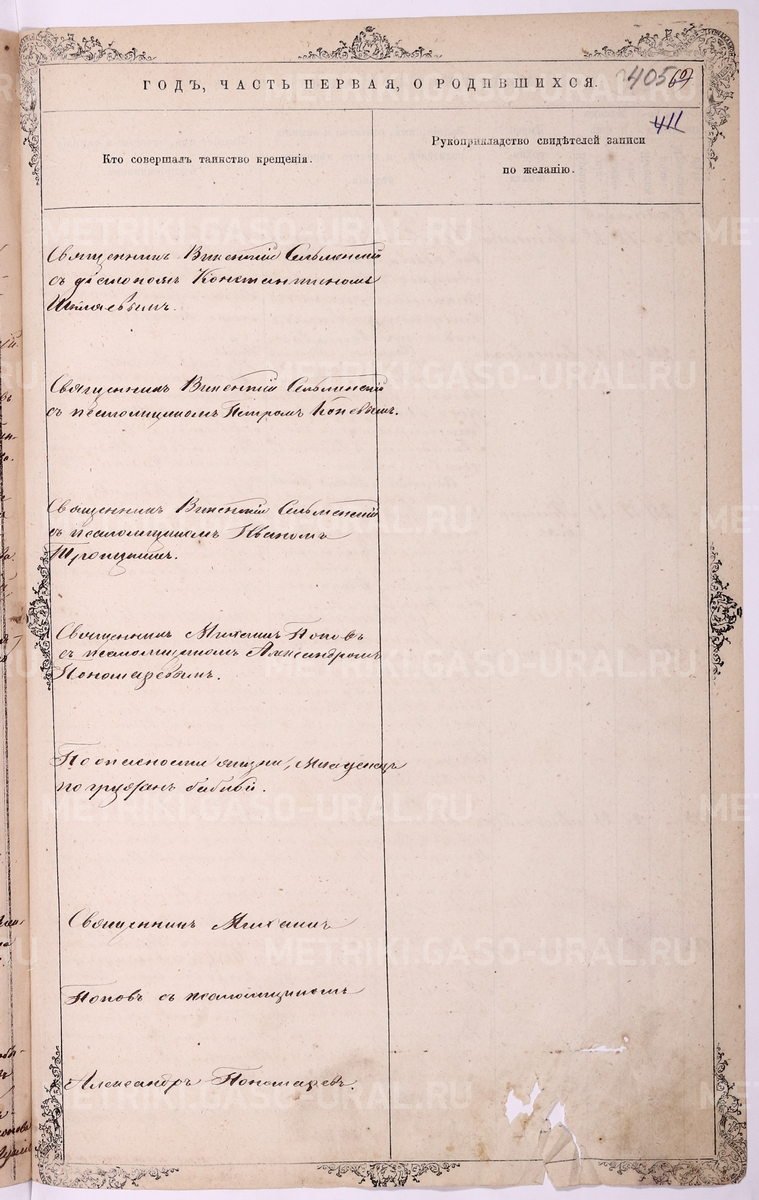 ГОДЪ, ЧАСТЬ ПЕРВАЯ, О РОДИВШИХСЯ.
405
411
Кто совершалъ таинство крещенія.
Рукоприкладство свидѣтелей записи
по желанію.
Священникъ Викентій
съ діакономъ Константиномъ
Священникъ Викентій
съ псаломщикомъ Петромъ
Священникъ Викентій
съ псаломщикомъ Иваномъ
Троицкимъ.
Священникъ Михаилъ Поповъ
съ псаломщикомъ Александромъ
Пономаревымъ.
По опасности жизни, младенецъ
погружен бабкой.
Священникъ Михаилъ
Поповъ съ псаломщикомъ
Александръ Пономаревъ.
METRIKI.GASO-URAL.RU